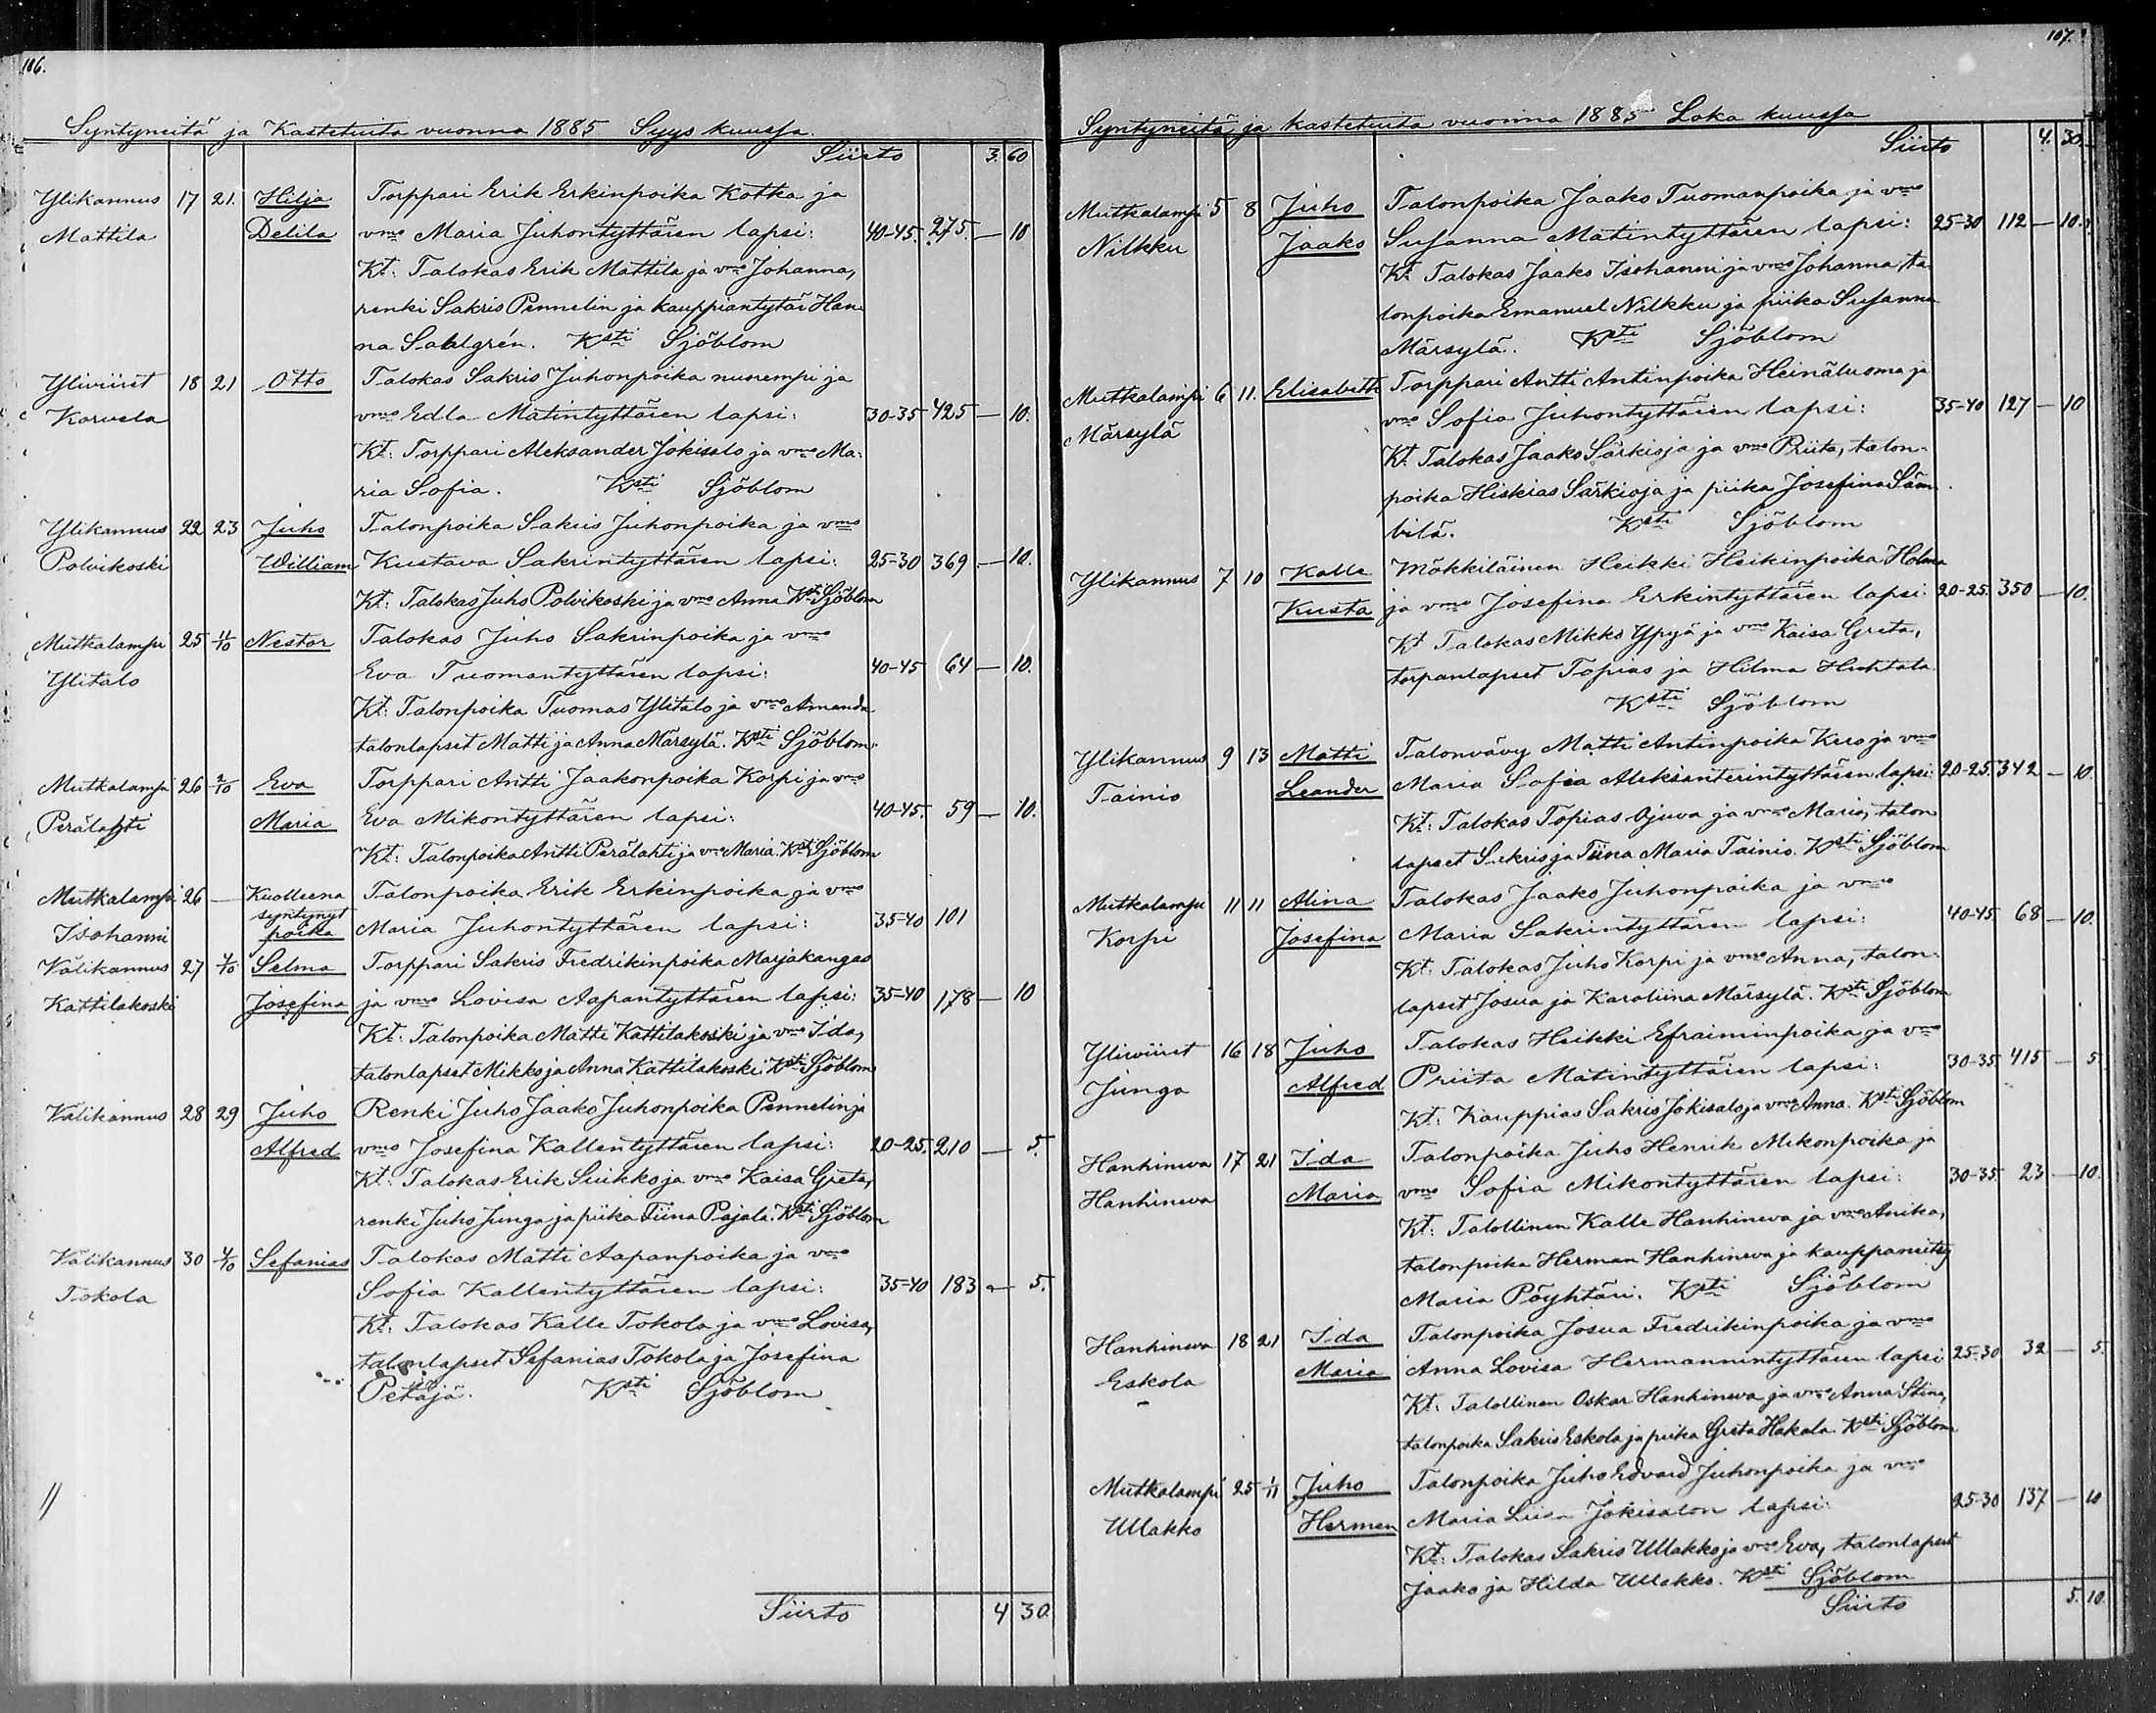 106.
Syntyneitä ja Kastetuita vuonna 1885 Syys kuussa.
Siirto 3. 60
Ylikannus 17 21. Hilja Torppari Erik Erkinpoika Kotka ja
Mattila Delila vmo Maria Juhontyttären lapsi: 40-45. 275. — 10
Kt: Talokas Erik Mattila ja vmo Johanna,
renki Sakris Pennelin ja kauppiantytär Han
na Sahlgrén. Ksti Sjöblom
Yliviiret 18 21 Otto Talokas Sakris Juhonpoika nuorempi ja
Karvela vmo Edla Matintyttären lapsi: 30-35 425 — 10.
Kt: Torppari Aleksander Jokisalo ja vmo Ma-
ria Sofia. Ksti Sjöblom
Ylikannus 22 23 Juho Talonpoika Sakris Juhonpoika ja vmo
Polvikoski William Kustava Sakrintyttären lapsi: 25-30 369 — 10.
Kt: Talokas Juho Polvikoski ja vmo Anna Ksti Sjöblom
Mutkalampi 25 1/10 Nestor Talokas Juho Sakrinpoika ja vmo
Ylitalo Eva Tuomantyttären lapsi: 40-45 64 — 10.
Kt: Talonpoika Tuomas Ylitalo ja vmo Amanda
talonlapset Matti ja Anna Märsylä. Ksti Sjöblom.
Mutkalampi 26 2/10 Eva Torppari Antti Jaakonpoika Korpi ja vmo
Perälahti Maria Eva Mikontyttären lapsi: 40-45. 59 — 10.
Kt: Talonpoika Antti Perälahti ja vmo Maria. Ksti Sjöblom
Mutkalampi 26 — Kuolleena Talonpoika Erik Erkinpoika ja vmo
syntynyt
Isohanni poika Maria Juhontyttären lapsi: 35-40 101
Välikannus 27 4/10 Selma Torppari Sakris Fredrikinpoika Marjakangas
Kattilakoski Josefina ja vmo Lovisa Aapantyttären lapsi: 35-40 178 — 10
Kt: Talonpoika Matti Kattilakoski ja vmo Ida,
talonlapset Mikko ja Anna Kattilakoski Ksti Sjöblom
Välikannus 28 29 Juho Renki Juho Jaako Juhonpoika Pennelin ja
Alfred vmo Josefina Kallentyttären lapsi: 20-25. 210 — 5.
Kt: Talokas Erik Siukko ja vmo Kaisa Greta,
renki Juho Junga ja piika Tiina Pajala. Ksti Sjöblom
Välikannus 30 4/10 Sefanias Talokas Matti Aapanpoika ja vmo
Tokola Sofia Kallentyttären lapsi: 35-40 183 — 5.
Kt: Talokas Kalle Tokola ja vmo Lovisa,
talonlapset Sefanias Tokola ja Josefina
Petäjä. Ksti Sjöblom
Siirto 4 30.
107.
Syntyneitä ja kastetuita vuonna 1885 Loka kuussa
Siirto 4. 30.
Mutkalampi 5 8 Juho Talonpoika Jaako Tuomanpoika ja vmo
Nilkku Jaako Susanna Matintyttären lapsi: 25-30 112 — 10.
Kt: Talokas Jaako Isohanni ja vmo Johanna, ta
lonpoika Emanuel Nilkku ja piika Susanna
Märsylä. Ksti Sjöblom
Mutkalampi 6 11. Elisabeth Torppari Antti Antinpoika Heinäluoma ja
Märsylä vmo Sofia Juhontyttären lapsi: 35-40 127 — 10
Kt. Talokas Jaako Särkioja ja vmo Priita, talon-
poika Hiskias Särkioja ja piika Josefina Säm
bilä. Ksti Sjöblom
Ylikannus 7 10 Kalle Mökkiläinen Heikki Heikinpoika Holma
Kusta ja vmo Josefina Erkintyttären lapsi: 20-25. 350 — 10.
Kt Talokas Mikko Ypyä ja vmo Kaisa Greta,
torpanlapset Topias ja Hilma Huhtala
Ksti Sjöblom
Ylikannus 9 13 Matti Talonvävy Matti Antinpoika Kero ja vmo
Tainio Leander Maria Sofia Aleksanterintyttären lapsi: 20-25. 342 — 10.
Kt: Talokas Topias Ojuva ja vmo Maria, talon
lapset Sakris ja Tiina Maria Tainio. Ksti Sjöblom
Mutkalampi 11 11 Alina Talokas Jaako Juhonpoika ja vmo
Korpi Josefina Maria Sakrintyttären lapsi: 40-45 68 — 10.
Kt: Talokas Juho Korpi ja vmo Anna, talon-
lapset Josua ja Karoliina Märsylä. Ksti Sjöblom
Yliviiret 16 18 Juho Talokas Heikki Efraiminpoika ja vmo
Junga Alfred Priita Matintyttären lapsi: 30-35. 415 — 5.
Kt: Kauppias Sakris Jokisalo ja vmo Anna. Ksti Sjöblom
Hanhineva 17 21 Ida Talonpoika Juho Henrik Mikonpoika ja
Hanhineva Maria vmo Sofia Mikontyttären lapsi: 30-35. 23 — 10.
Kt: Talollinen Kalle Hanhineva ja vmo Anika,
talonpoika Herman Hanhineva ja kauppaneitsy
Maria Pöyhtäri. Ksti Sjöblom
Hanhineva 18 21 Ida Talonpoika Josua Fredrikinpoika ja vmo
Eskola Maria Anna Lovisa Hermannintyttären lapsi 25-30 32 — 5.
Kt: Talollinen Oskar Hanhineva ja vmo Anna Stina,
talonpoika Sakris Eskola ja piika Greta Hakala. Ksti Sjöblom
Mutkalampi 25 1/11 Juho Talonpoika Juho Edvard Juhonpoika ja vmo
Ullakko Herman Maria Liisa Jokisalon lapsi: 25-30 137 — 10
Kt: Talokas Sakris Ullakko ja vmo Eva, talonlapset
Jaako ja Hilda Ullakko. Ksti Sjöblom
Siirto 5. 10.